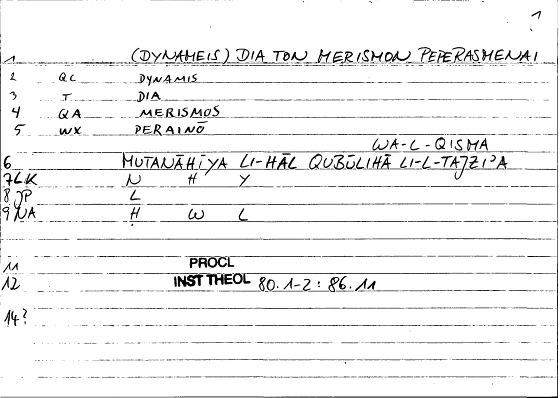 1
1 (DYNAMEIS) DIA TON MERISMON PEPERASMENAI
2 QC DYNAMIS
3 T DIA
4 QA MERISMOS
5 WX PERAINŌ
WA-L-QISMA
6 MUTANĀHIYA LI-ḤĀL QUBŪLIHĀ LI-L-TAJZIʾA
7 LK N H Y
8 JP L
9 NA Ḥ W L
11 PROCL
12 INST THEOL 80.1-2 : 86.11
14?